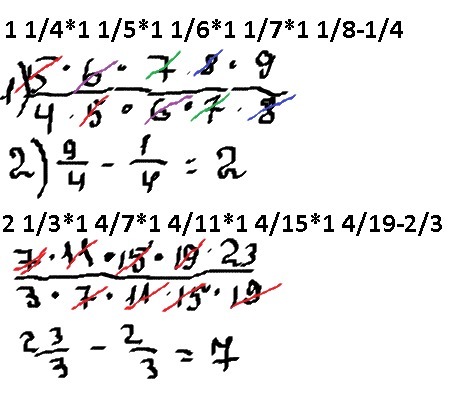 1 1/4*1 1/5*1 1/6*1 1/7*1 1/8-1/4
1) 5 · 6 · 7 · 8 · 9
4 · 5 · 6 · 7 · 8
2) 9/4 - 1/4 = 2
2 1/3*1 4/7*1 4/11*1 4/15*1 4/19-2/3
7 · 11 · 15 · 19 · 23
3 · 7 · 11 · 15 · 19
23/3 - 2/3 = 7